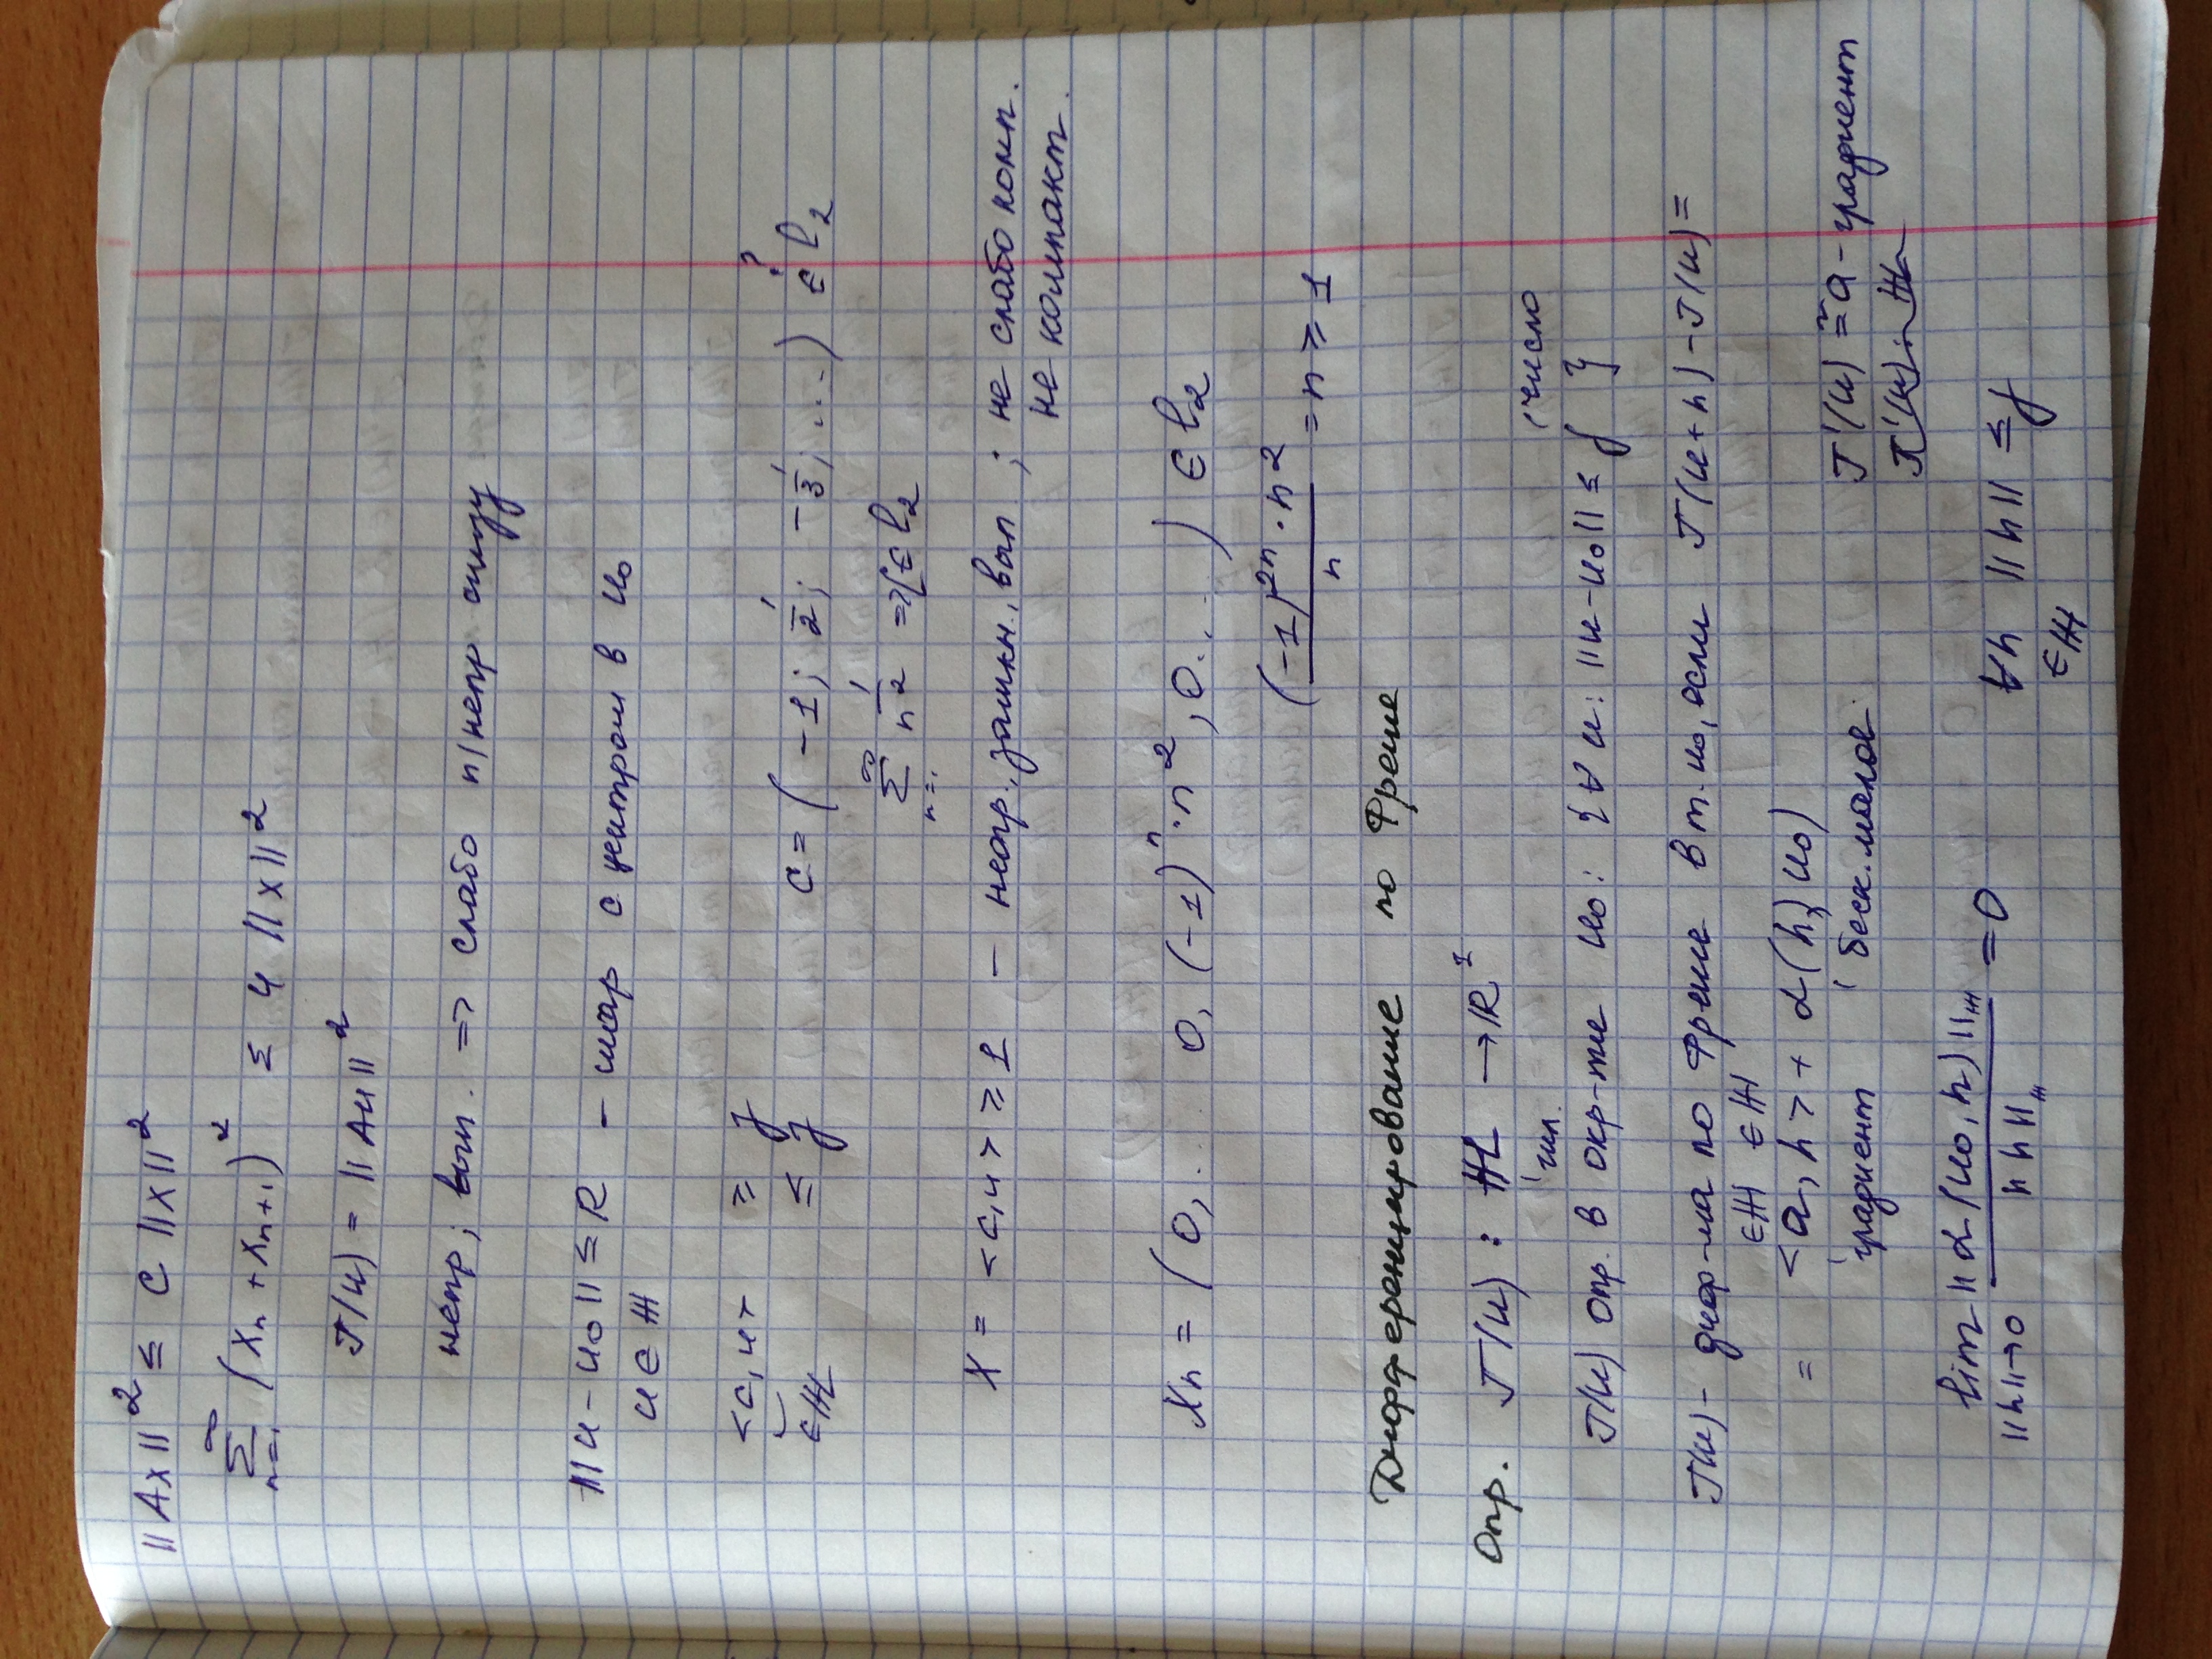 ||Ax||² ≤ C ||x||²
∑_{n=1}^{∞} (x_n + x_{n+1})² ≤ 4 ||x||²
J(u) = ||Au||²
непр; вып. => слабо п/непр снизу
||u - u₀|| ≤ R - шар с центром в u₀
u ∈ H
<c, u> ≥ γ
∈H ≤ γ
c = (-1; 1/2; -1/3; ...) ∈? l₂
∑_{n=1}^{∞} 1/n² => ∈ l₂
X = <c, u> ≥ 1 - неогр., замкн., вып ; не слабо комп.
не компакт.
x_n = (0, ... 0, (-1)ⁿ · n², 0 ... ) ∈ l₂
((-1)²ⁿ · n²)/n = n ≥ 1
Дифференцирование по Фреше
Опр. J(u) : H → R¹
гил. число
J(u) опр. в окр-ти u₀: {∀ u: ||u - u₀|| ≤ γ }
J(u) - диф-ма по Фреше в т. u₀, если J(u + h) - J(u) =
∈H ∈H
= <a, h> + α(h, u₀) J'(u) = a - градиент
градиент беск. малое
lim_{||h||→0} ||α(u₀, h)||_H / ||h||_H = 0 ∀h ||h|| ≤ γ
∈H